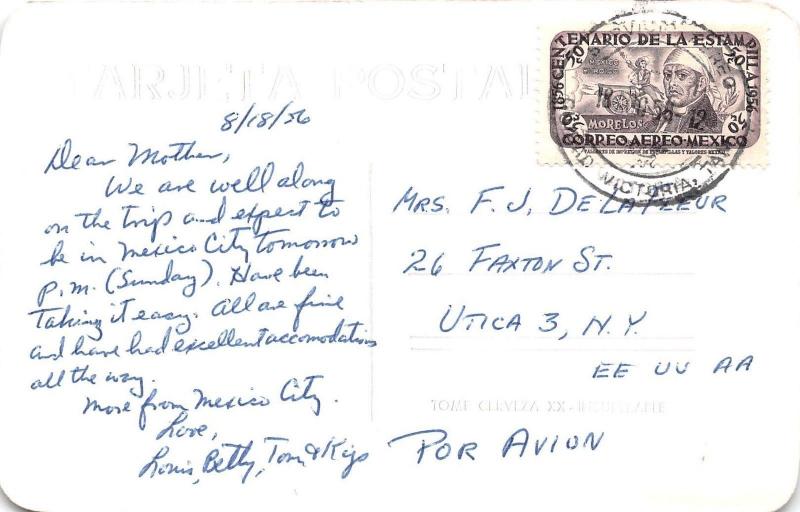 TARJETA POSTAL
8/18/56
Dear Mother,
We are well along
on the trip and expect to
be in Mexico City tomorrow
p.m. (Sunday). Have been
taking it easy. All are fine
and have had excellent accomodations
all the way.
More from Mexico City.
Love,
Louis, Betty, Tom &
1856 CENTENARIO DE LA ESTAMPILLA 1956
50c
50c
MEXICO
MORELOS
50c
50c
CORREO AEREO-MEXICO
VICTORIA, TAM
MRS. F. J. DE LAFLEUR
26 FAXTON ST.
UTICA 3, N.Y.
EE UU AA
TOME CERVEZA XX - INSUPERABLE
POR AVION